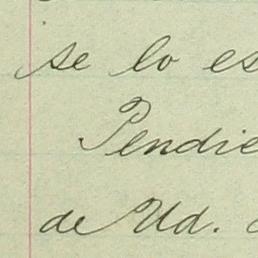 se lo es
Pendie
de Ud.